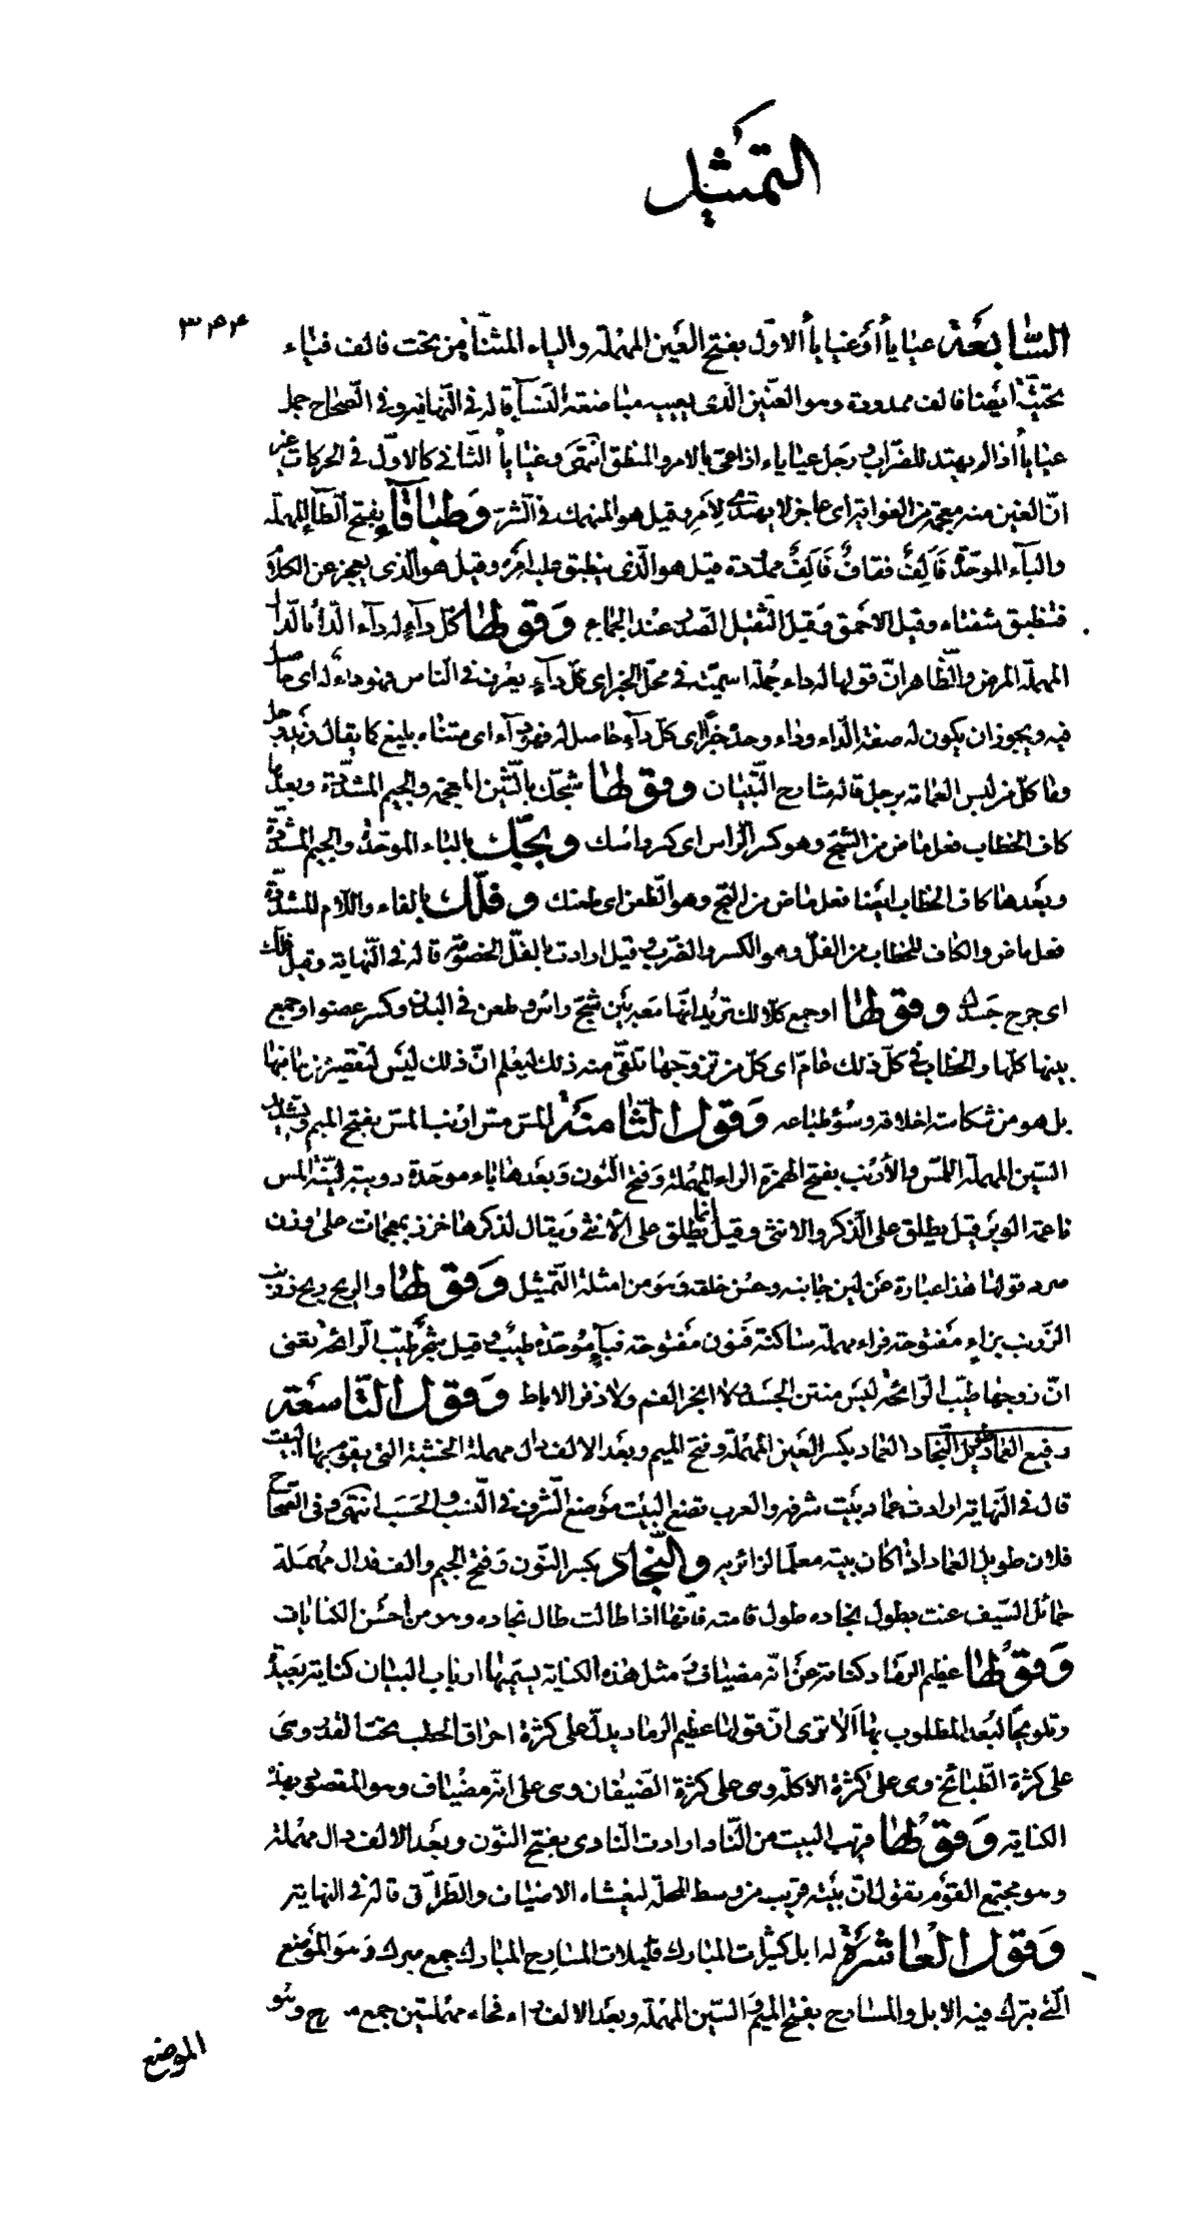 التمثيل
۳۴۴
السّابعة عياياء أو غياياء الاول بفتح العين المهملة والياء المثناة من تحت فالف فياء
تحتيّة ايضا فالف ممدودة وهو العنّين الذى يعييه مباضعة النسآء قاله فى النهاية وفى الصحاح جمل
عياياء اذا لم يهتد للضراب ورجل عياياء اذا عىّ بالامر والمنطق انتهى وغياياء الثانى كالاول فى الحركات غير
انّ الغين منه معجمة من الغواية اى عاجز لا يهتدى لامر وقيل هو المنهمك فى الشرّ وطباقآء بفتح الطآء المهملة
والبآء الموحّدة فالف فقاف فالف ممدودة قيل هو الّذى ينطبق عليه امره وقيل هو الّذى يعجز عن الكلام
فتنطبق شفتاه وقيل الاحمق وقيل الثقيل الصدر عند الجماع وقولها كلّ دآء له دآء الدّاء بالدال
المهملة المرض والظاهر انّ قولها له داء جملة اسميّة فى محلّ الخبر اى كلّ دآء يعرف فى الناس فهو داء له اى حاصل
فيه ويجوز ان يكون له صفة الداء وداء وحده خبرًا اى كلّ دآء حاصل له فهو دآء اى متناه بليغ كما يقال زيد رجل
وما كلّ من لبس العمامة برجل قاله شارح التبيان وقولها شجّك بالشين المعجمة والجيم المشدّدة وبعدها
كاف الخطاب فعل ماض من الشجّ وهو كسر الراس اى كسر راسك وبجّك بالباء الموحّدة والجيم المشدّدة
وبعدها كاف الخطاب ايضا فعل ماض من البجّ وهو الطعن اى طعنك وفلّك بالفاء واللام المشدّدة
فعل ماض والكاف للخطاب من الفلّ وهو الكسر والضرب وقيل ارادت بالفلّ الخصومة قاله فى النهاية وقيل فلّك
اى جرح جسدك وقولها او جمع كلّا لك تريد انّها معه بين شجّ راس وطعن فى البدن وكسر عضو او جمع
بينها كلّها والخطاب فى كلّ ذلك عامّ اى كلّ من تزوجها تلقى منه ذلك ليعلم انّ ذلك ليس لتقصير من جانبها
بل هو من شكاسة اخلاقه وسوء طباعه وقول الثامنة المسّ مسّ ارنب المسّ بفتح الميم وتشديد
السين المهملة اللمس والأرنب بفتح الهمزة الراء المهملة وفتح النون وبعدها باء موحّدة دويبة ليّنة المس
ناعمة الوبر قيل يطلق على الذكر والانثى وقيل انما يطلق على الانثى ويقال لذكرها خزز بمعجمات على وزن
صرد قولها هذا عبارة عن لين جانبه وحسن خلقه وهو من امثلة التمثيل وقولها والريح ريح زرنب
الزرنب بزاء مفتوحة فراء مهملة ساكنة فنون مفتوحة فبآء موحّدة طيب وقيل شجر طيّب الرائحة تعنى
انّ زوجها طيّب الرائحة ليس منتن الجسد ولا ابخر الفم ولا ذفر الاباط وقول التاسعة
رفيع العماد طويل النجاد العماد بكسر العين المهملة وفتح الميم وبعد الالف دال مهملة الخشبة التى يقوم بها البيت
قال فى النهاية ارادت عماد بيت شرفه والعرب تضع البيت موضع الشرف فى النسب والحسب انتهى وفى الصحاح
فلان طويل العماد اذا كان بيته معلما لزائريه والنّجاد بكسر النون وفتح الجيم والف فدال مهملة
حمائل السيف عنت بطول نجاده طول قامته فانّها اذا طالت طال نجاده وهو من احسن الكنايات
وقولها عظيم الرماد كناية عن انّه مضياف ومثل هذه الكناية يسمّيها ارباب البيان كناية بعيدة
وتلويحًا لبعد المطلوب بها ألا ترى انّ قولها عظيم الرماد يدلّ على كثرة احراق الحطب تحت القدر وهى
على كثرة الطبائخ وهى على كثرة الاكلة وهى على كثرة الضيفان وهى على انّه مضياف وهو المقصود بهذه
الكناية وقولها قريب البيت من النّاد ارادت النادى بفتح النون وبعد الالف دال مهملة
وهو مجتمع القوم تقول انّ بيته قريب من وسط المحلة ليغشاه الاضياف والطّرّاق قاله فى النهاية
وقول العاشرة له ابل كثيرات المبارك قليلات المسارح المبارك جمع مبرك وهو الموضع
الّذى تبرك فيه الابل والمسارح بفتح الميم والسين المهملة وبعد الالف راء فحاء مهملتين جمع وهو
الموضع